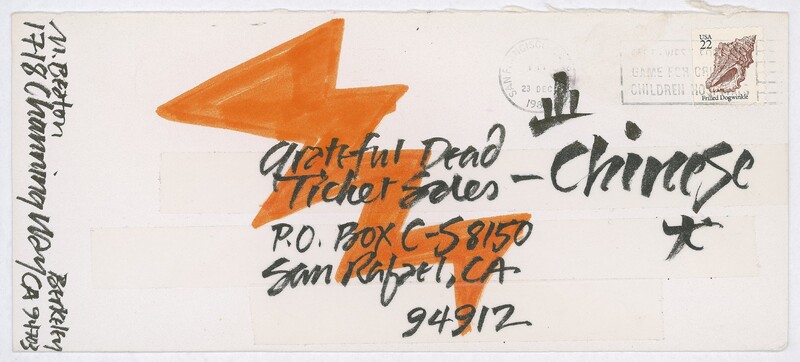 M. Beaton
1718 Channing Way
Berkeley
CA 94703
USA
22
Frilled Dogwinkle
23 DEC
GAME FOR
CHILDREN
Grateful Dead
Ticket Sales – Chinese
P.O. Box C-S8150
San Rafael, CA
94912